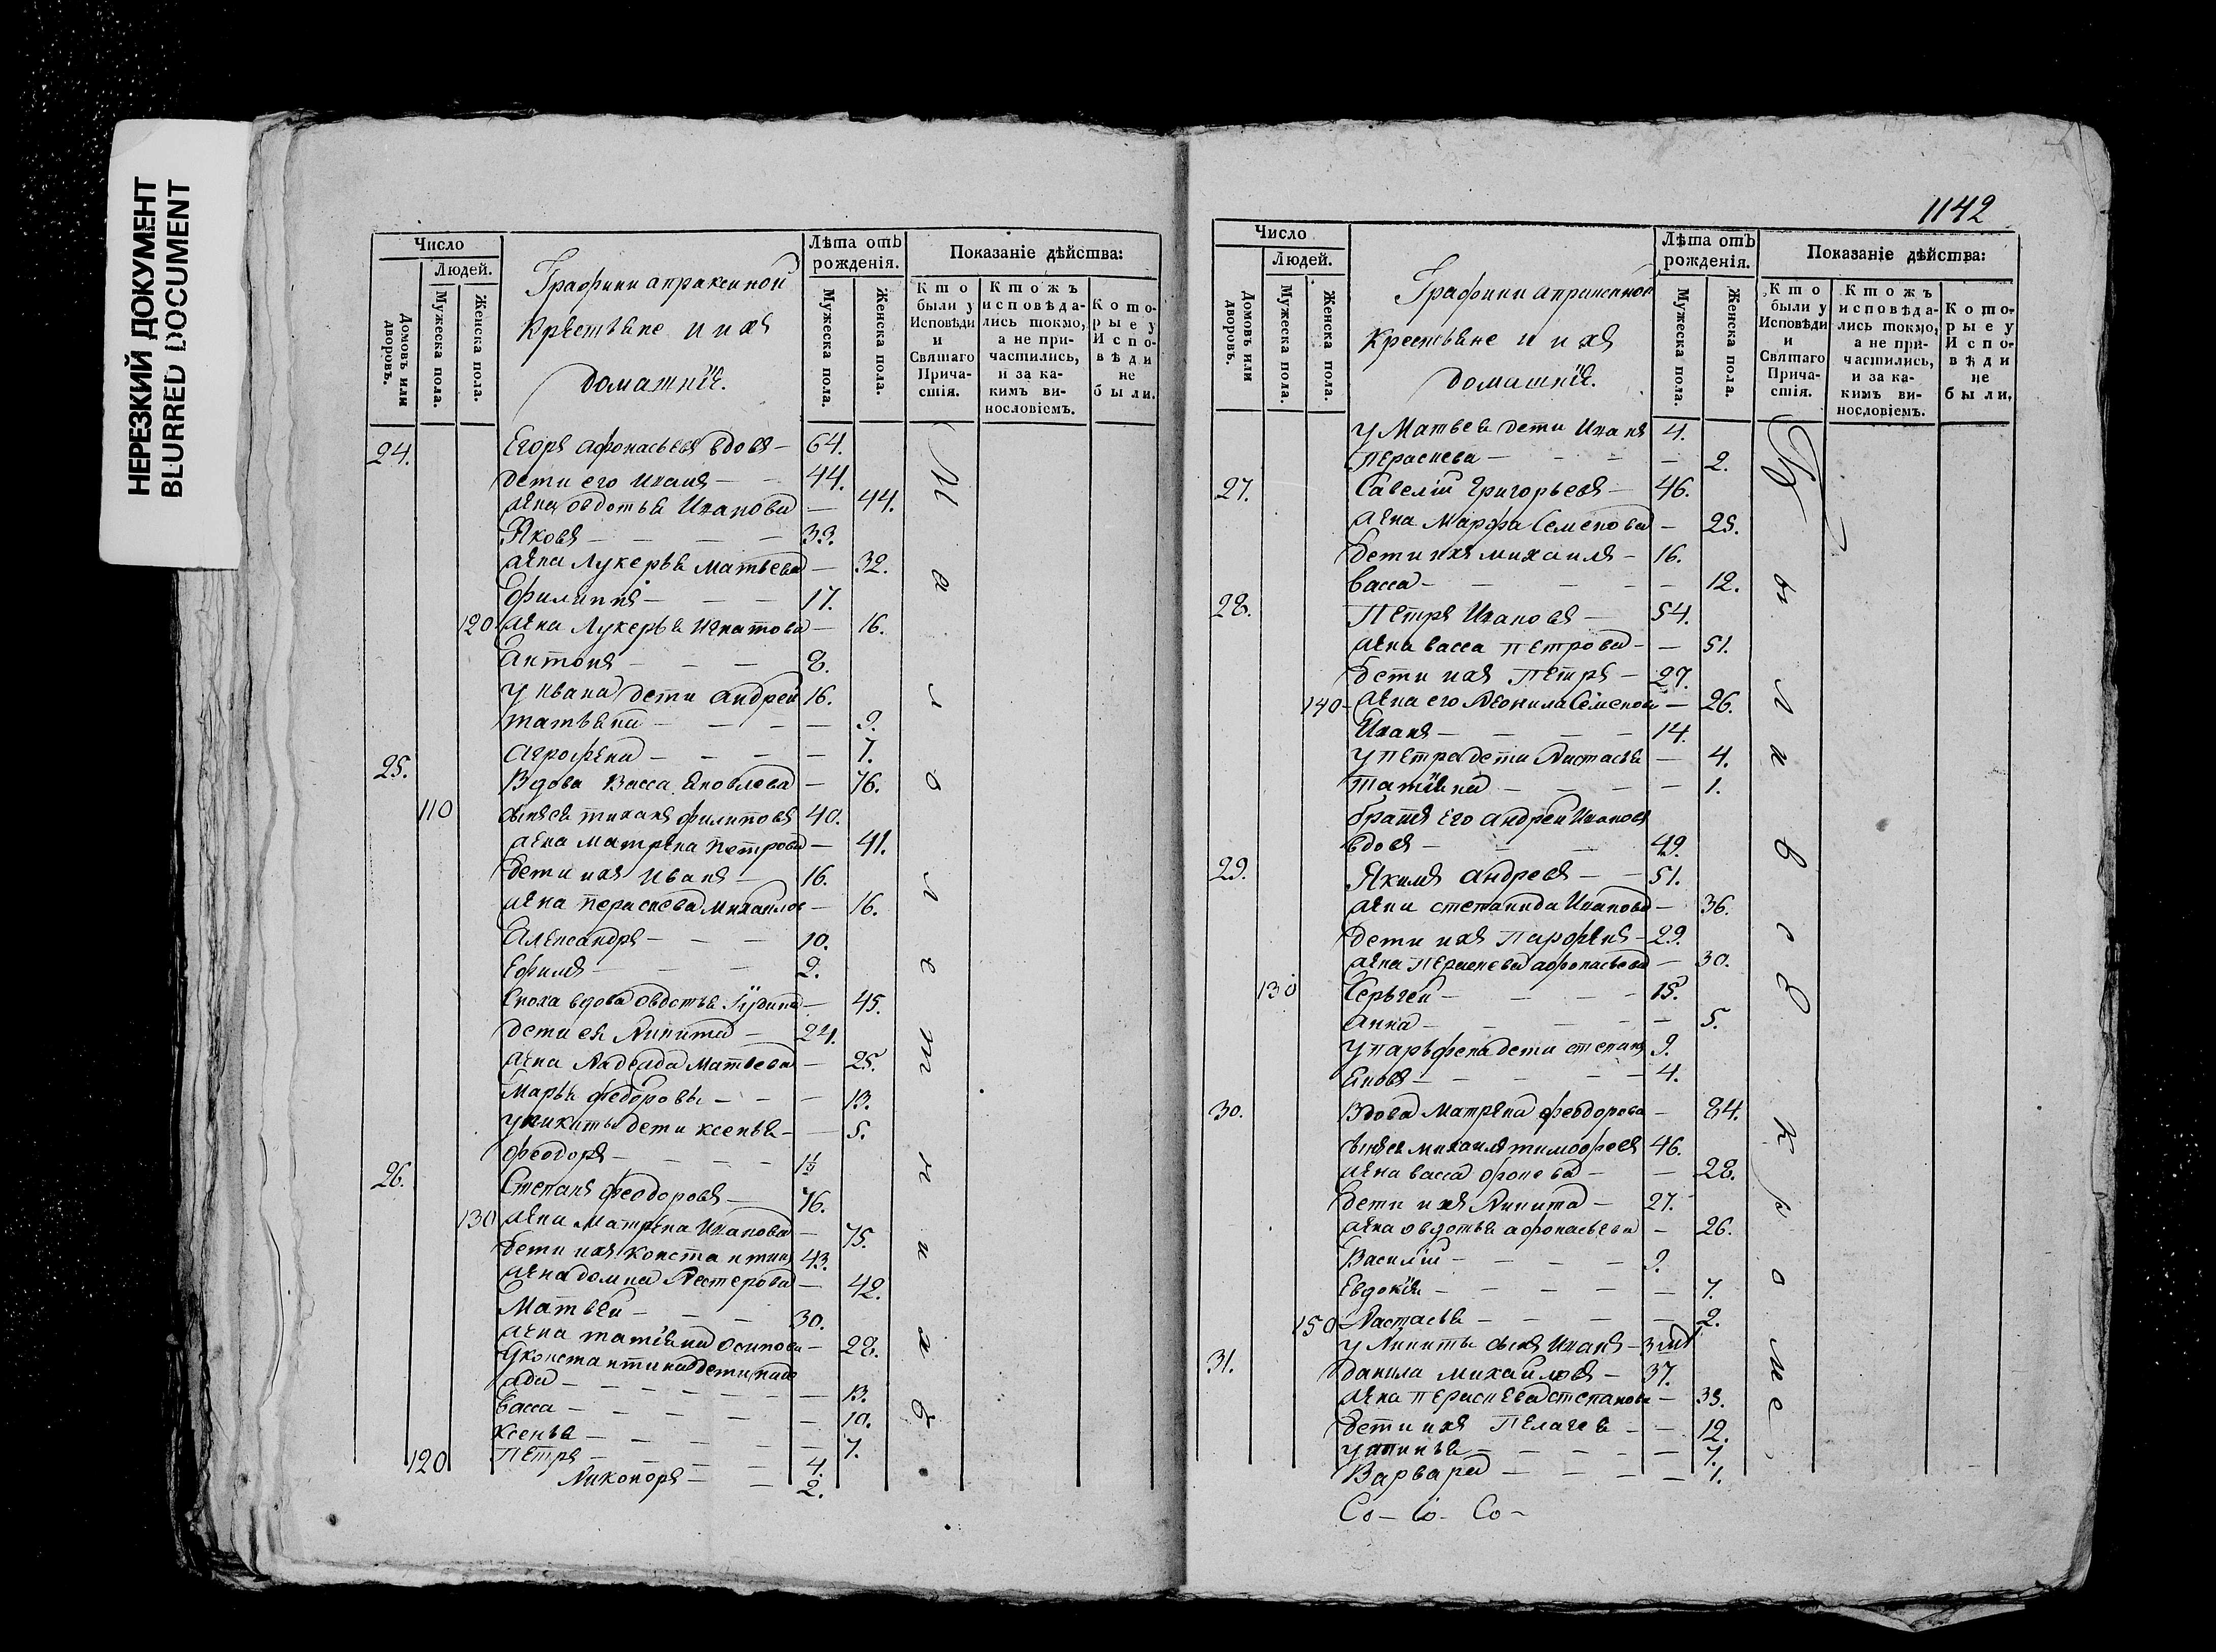 НЕРЕЗКИЙ ДОКУМЕНТ
BLURRED DOCUMENT
Число
Людей.
Домовъ или дворовъ.
Мужеска пола.
Женска пола.
Графини апраксиной
крестьяне и ихъ
домашніе.
Лѣта отъ рожденія.
Мужеска пола.
Женска пола.
Показаніе дѣйства:
Кто были у Исповѣди и Святаго Причастія.
Ктожъ исповѣдались токмо, а не причастились, и за какимъ винословіемъ.
Которые у Исповѣди не были.
24. Егоръ афонасьевъ вдовъ — 64.
дети его Иванъ — 44.
жена овдотья Иванова — 44.
Яковъ — 33.
жена Лукерья Матвеева — 32.
Филиппъ — 17.
120 жена Лукерья Игнатова — 16.
Антонъ — 8.
у ивана дети андрей 16.
татьяна — 9.
Агрофена — 7.
25. Вдова Васса Яковлева — 76.
110 сынъ ея тиханъ филиповъ 40.
жена матрена петрова — 41.
дети ихъ Иванъ — 16.
жена Параскева Михайлов — 16.
Александръ — 10.
Ефимъ — 2.
сноха вдова овдотья — 45.
дети ея Никита — 24.
жена Надежда Матвеева — 25.
Марья федоровы — 13.
у никиты дети ксенья — 5.
феодоръ —
26. Степанъ феодоровъ — 76.
130 жена Матрена Иванова — 75.
дети ихъ константинъ 43.
жена домна Нестерова — 42.
Матвей — 30.
жена татіяна Осипова — 28.
у константина дети
— 13.
Васса — 10.
ксенья — 7.
120 Петръ — 4.
Никоноръ — 2.
1142
Число
Людей.
Домовъ или дворовъ.
Мужеска пола.
Женска пола.
Графини апраксиной
крестьяне и ихъ
домашніе.
Лѣта отъ рожденія.
Мужеска пола.
Женска пола.
Показаніе дѣйства:
Кто были у Исповѣди и Святаго Причастія.
Ктожъ исповѣдались токмо, а не причастились, и за какимъ винословіемъ.
Которые у Исповѣди не были.
у Матвея дети Иванъ 4.
Параскева — 2.
27. Савелій Григорьевъ — 46.
жена Марфа Семенова — 25.
дети ихъ михаилъ — 16.
Васса — 12.
28. Петръ Ивановъ — 54.
жена васса петрова — 51.
дети ихъ Петръ — 27.
140 жена его Неонила Семенова — 26.
Иванъ — 14.
у петра дети Настасья — 4.
татіяна — 1.
братъ его андрей Ивановъ
вдовъ — 49.
29. Якимъ андреевъ — 51.
жена степанида Иванова — 36.
дети ихъ Парфенъ — 29.
жена Параскева афонасьева — 30.
130 Сергей — 15.
Анна — 5.
у парьфена дети степанъ 9.
Яковъ — 4.
30. Вдова Матрена феодорова — 84.
сынъ ея михаилъ тимофеевъ 46.
жена васса — 28.
дети ихъ Никита — 27.
жена овдотья афонасьева — 26.
Василій — 9.
Евдокія — 7.
150 Настасья — 2.
у Никиты сынъ Иванъ —
31. данила михайловъ — 37.
жена параскева степанова — 33.
дети ихъ Пелагея — 12.
устинья — 7.
Варвара — 1.
Со — Со — Со —